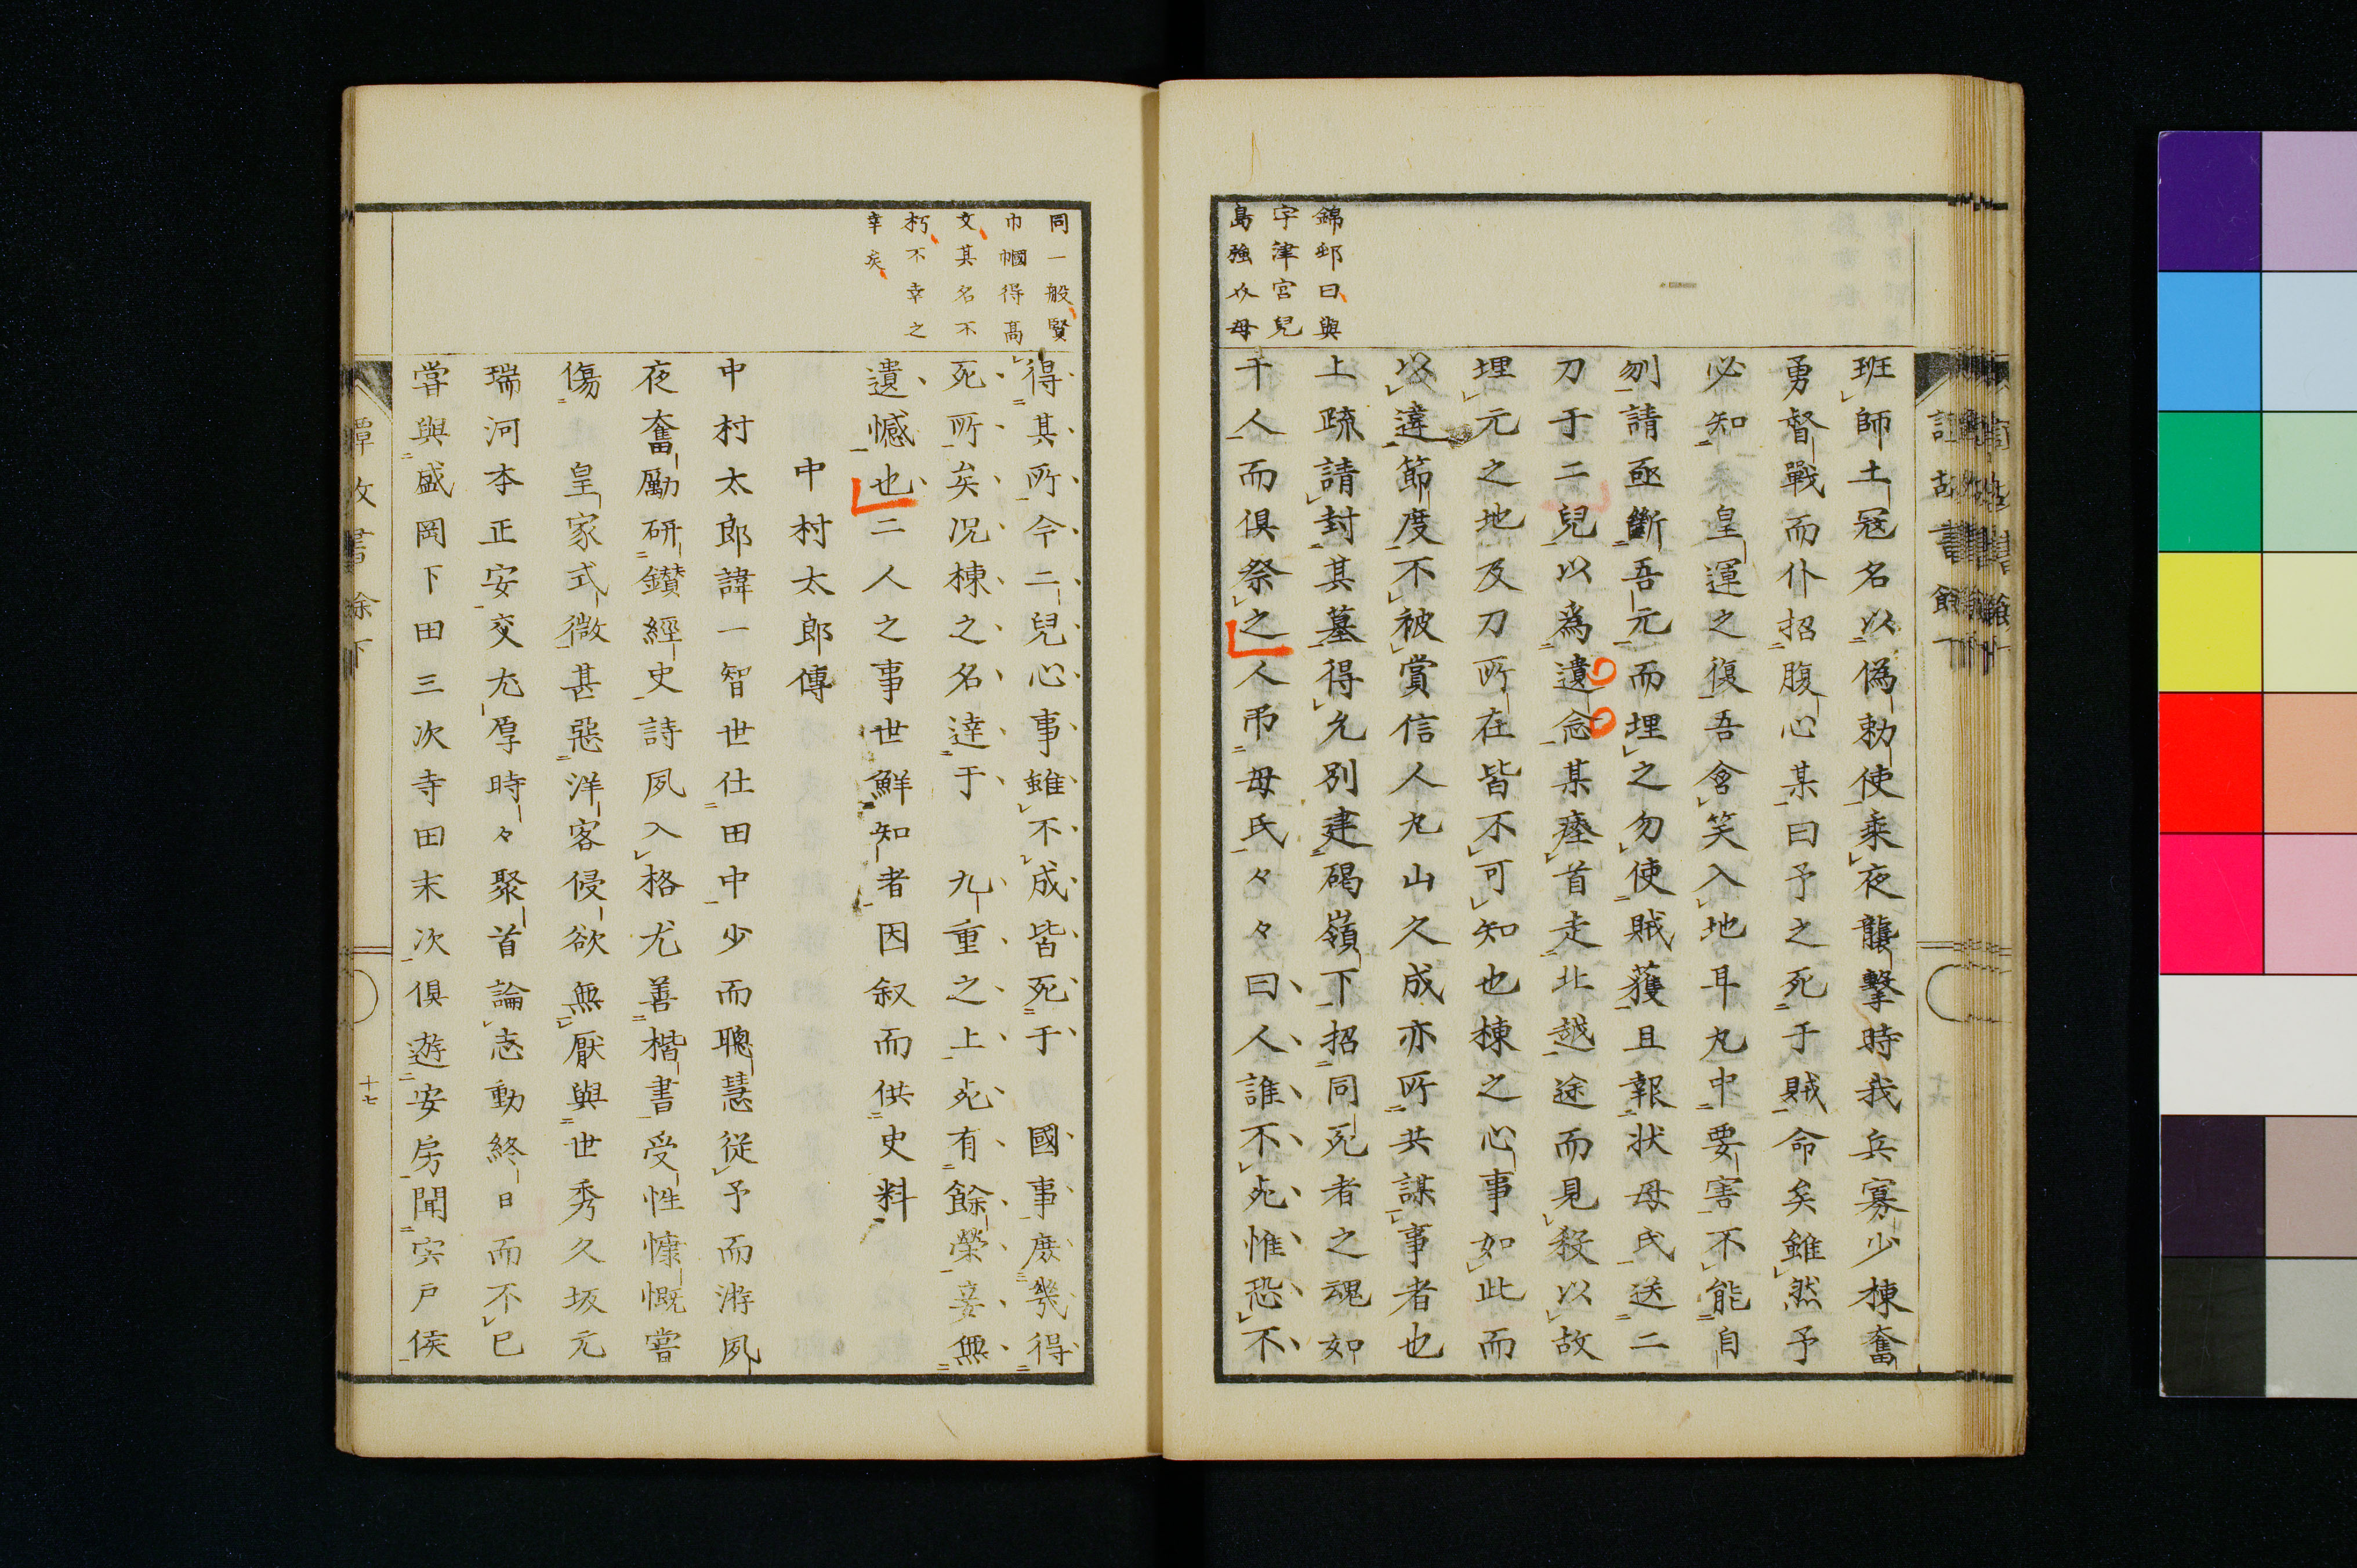 錦邨曰與
宇津宮兒
島強介母
班師土冦名以偽勅使乘夜襲擊時我兵寡少棟奮
勇督戰而仆招腹心某曰予之死于賊命矣雖然予
必知皇運之復吾含笑入地耳丸中要害不能自
刎請亟斷吾元而埋之勿使賊獲且報状母氏送二
刀于二兒以為遺念某瘞首走北越途而見殺以故
埋元之地及刀所在皆不可知也棟之心事如此而
以違節度不被賞信人丸山久成亦所共謀事者也
上疏請封其墓得允別建碣嶺下招同死者之魂如
千人而俱祭之人弔母氏々々曰人誰不死惟恐不
同一般賢
巾幗得高
文其名不
朽不幸之
幸矣
得其所今二兒心事雖不成皆死于 國事庶幾得
死所矣況棟之名達于 九重之上死有餘榮妾無
遺憾也二人之事世鮮知者因叙而供史料
中村太郎傳
中村太郎諱一智世仕田中少而聰慧從予而游夙
夜奮勵研鑚經史詩夙入格尤善楷書受性慷慨嘗
傷 皇家式微甚惡洋客侵欲無厭與世秀久坂元
瑞河本正安交尤厚時々聚首論志動終日而不已
嘗與盛岡下田三次寺田末次俱遊安房聞宍戶侯
十七